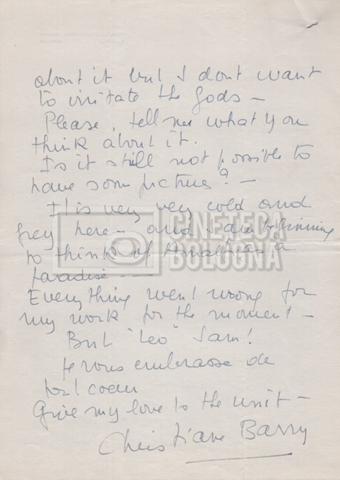 about it but I dont want
to irritate the gods –
Please, tell me what you
think about it.
Is it still not possible to
have some picture? –
It is very very cold and
grey here – and I am beginning
to think of as a
paradise –
Everything went wrong for
my work for the moment –
But "Leo" I am!
Je vous embrasse de
tout coeur
Give my love to the unit –
Christiane Barry
CINETECA
BOLOGNA